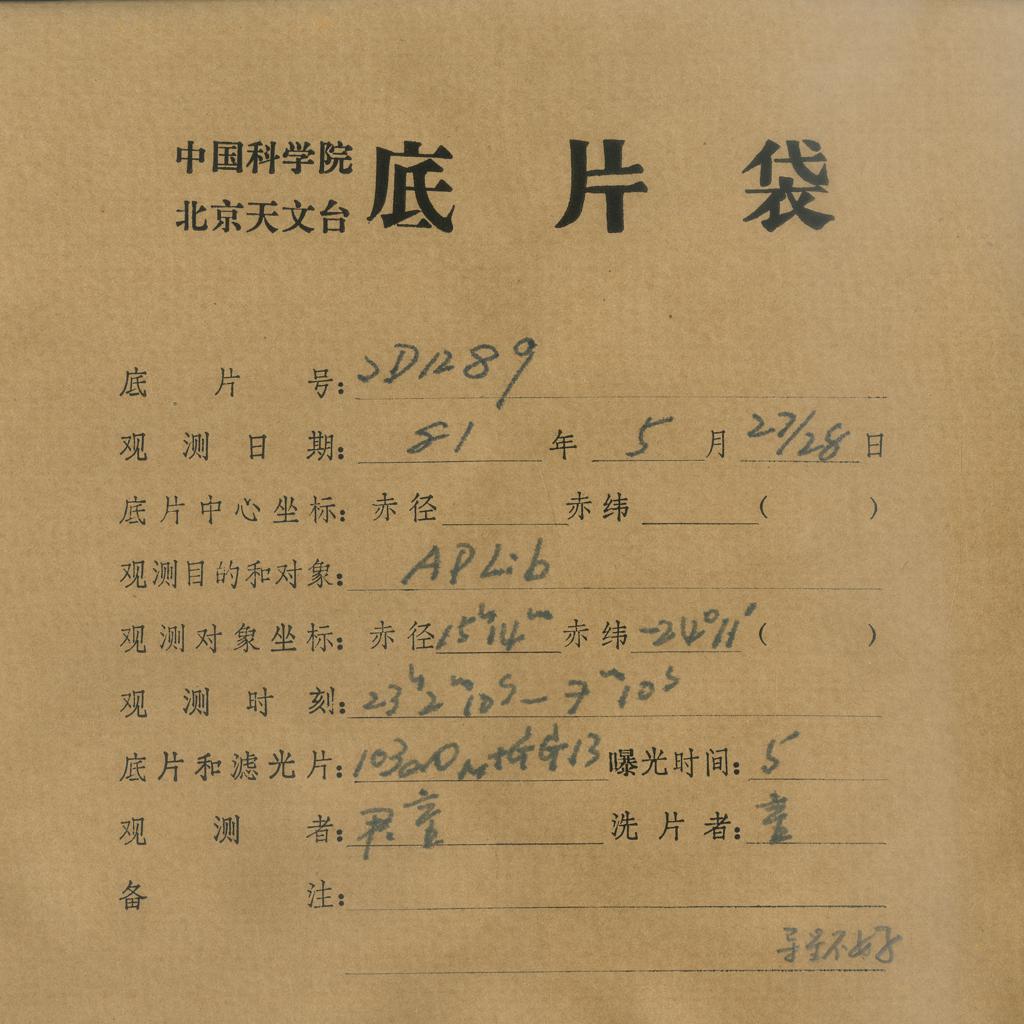 中国科学院
北京天文台
底片袋
底片号:JD1289
观测日期:81年5月27/28日
底片中心坐标:赤径 赤纬 ( )
观测目的和对象:AP Lib
观测对象坐标:赤径15ʰ14ᵐ赤纬-24°11′( )
观测时刻:23ʰ2ᵐ10ˢ-7ᵐ10ˢ
底片和滤光片:103aO +GG13 曝光时间:5
观测者: 洗片者:
备注:
导星不好